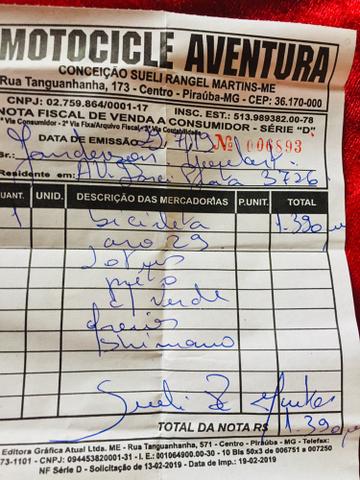 MOTOCICLE AVENTURA
CONCEIÇÃO SUELI RANGEL MARTINS-ME
Rua Tanguanhanha, 173 - Centro - Piraúba-MG - CEP: 36.170-000
CNPJ: 02.759.864/0001-17 INSC. EST.: 513.989382.00-78
NOTA FISCAL DE VENDA A CONSUMIDOR - SÉRIE "D"
ª Via Consumidor - 2ª Via Fixa/Arquivo Fiscal - 3ª Via Contabilidade
DATA DE EMISSÃO Nº 006893
Sr.:
Residente em: 3726
QUANT. UNID. DESCRIÇÃO DAS MERCADORIAS P.UNIT. TOTAL
1 bicicleta 1.390
aro 29
Lotus
preto
c/ verde
freios
shimano
Sueli
TOTAL DA NOTA R$ 1.390
Editora Gráfica Atual Ltda. ME - Rua Tanguanhanha, 571 - Centro - Piraúba - MG - Telefax:
73-1101 - CNPJ: 09445382
NF Série D - Solicitação de 13-02-2019 - Data de Imp.: 19-02-2019